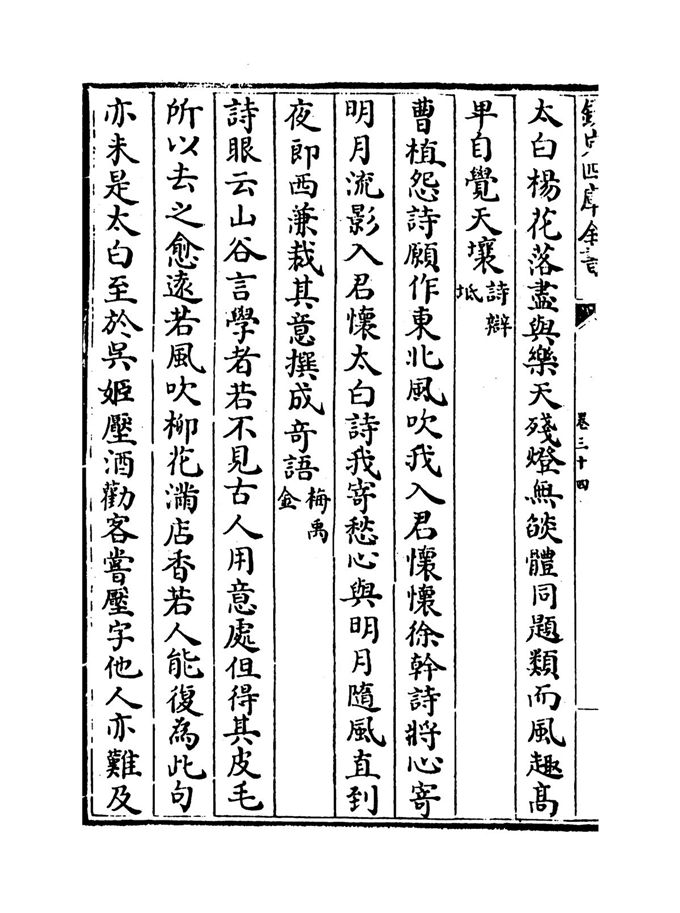 欽定四庫全書
卷三十四
太白楊花落盡與樂天殘燈無燄體同題類而風趣高
卑自覺天壤詩辯
坻
曹植怨詩願作東北風吹我入君懷懷徐幹詩將心寄
明月流影入君懷太白詩我寄愁心與明月隨風直到
夜郎西兼裁其意撰成奇語梅禹
金
詩眼云山谷言學者若不見古人用意處但得其皮毛
所以去之愈遠若風吹柳花滿店香若人能復為此句
亦未是太白至於吳姬壓酒勸客嘗壓字他人亦難及